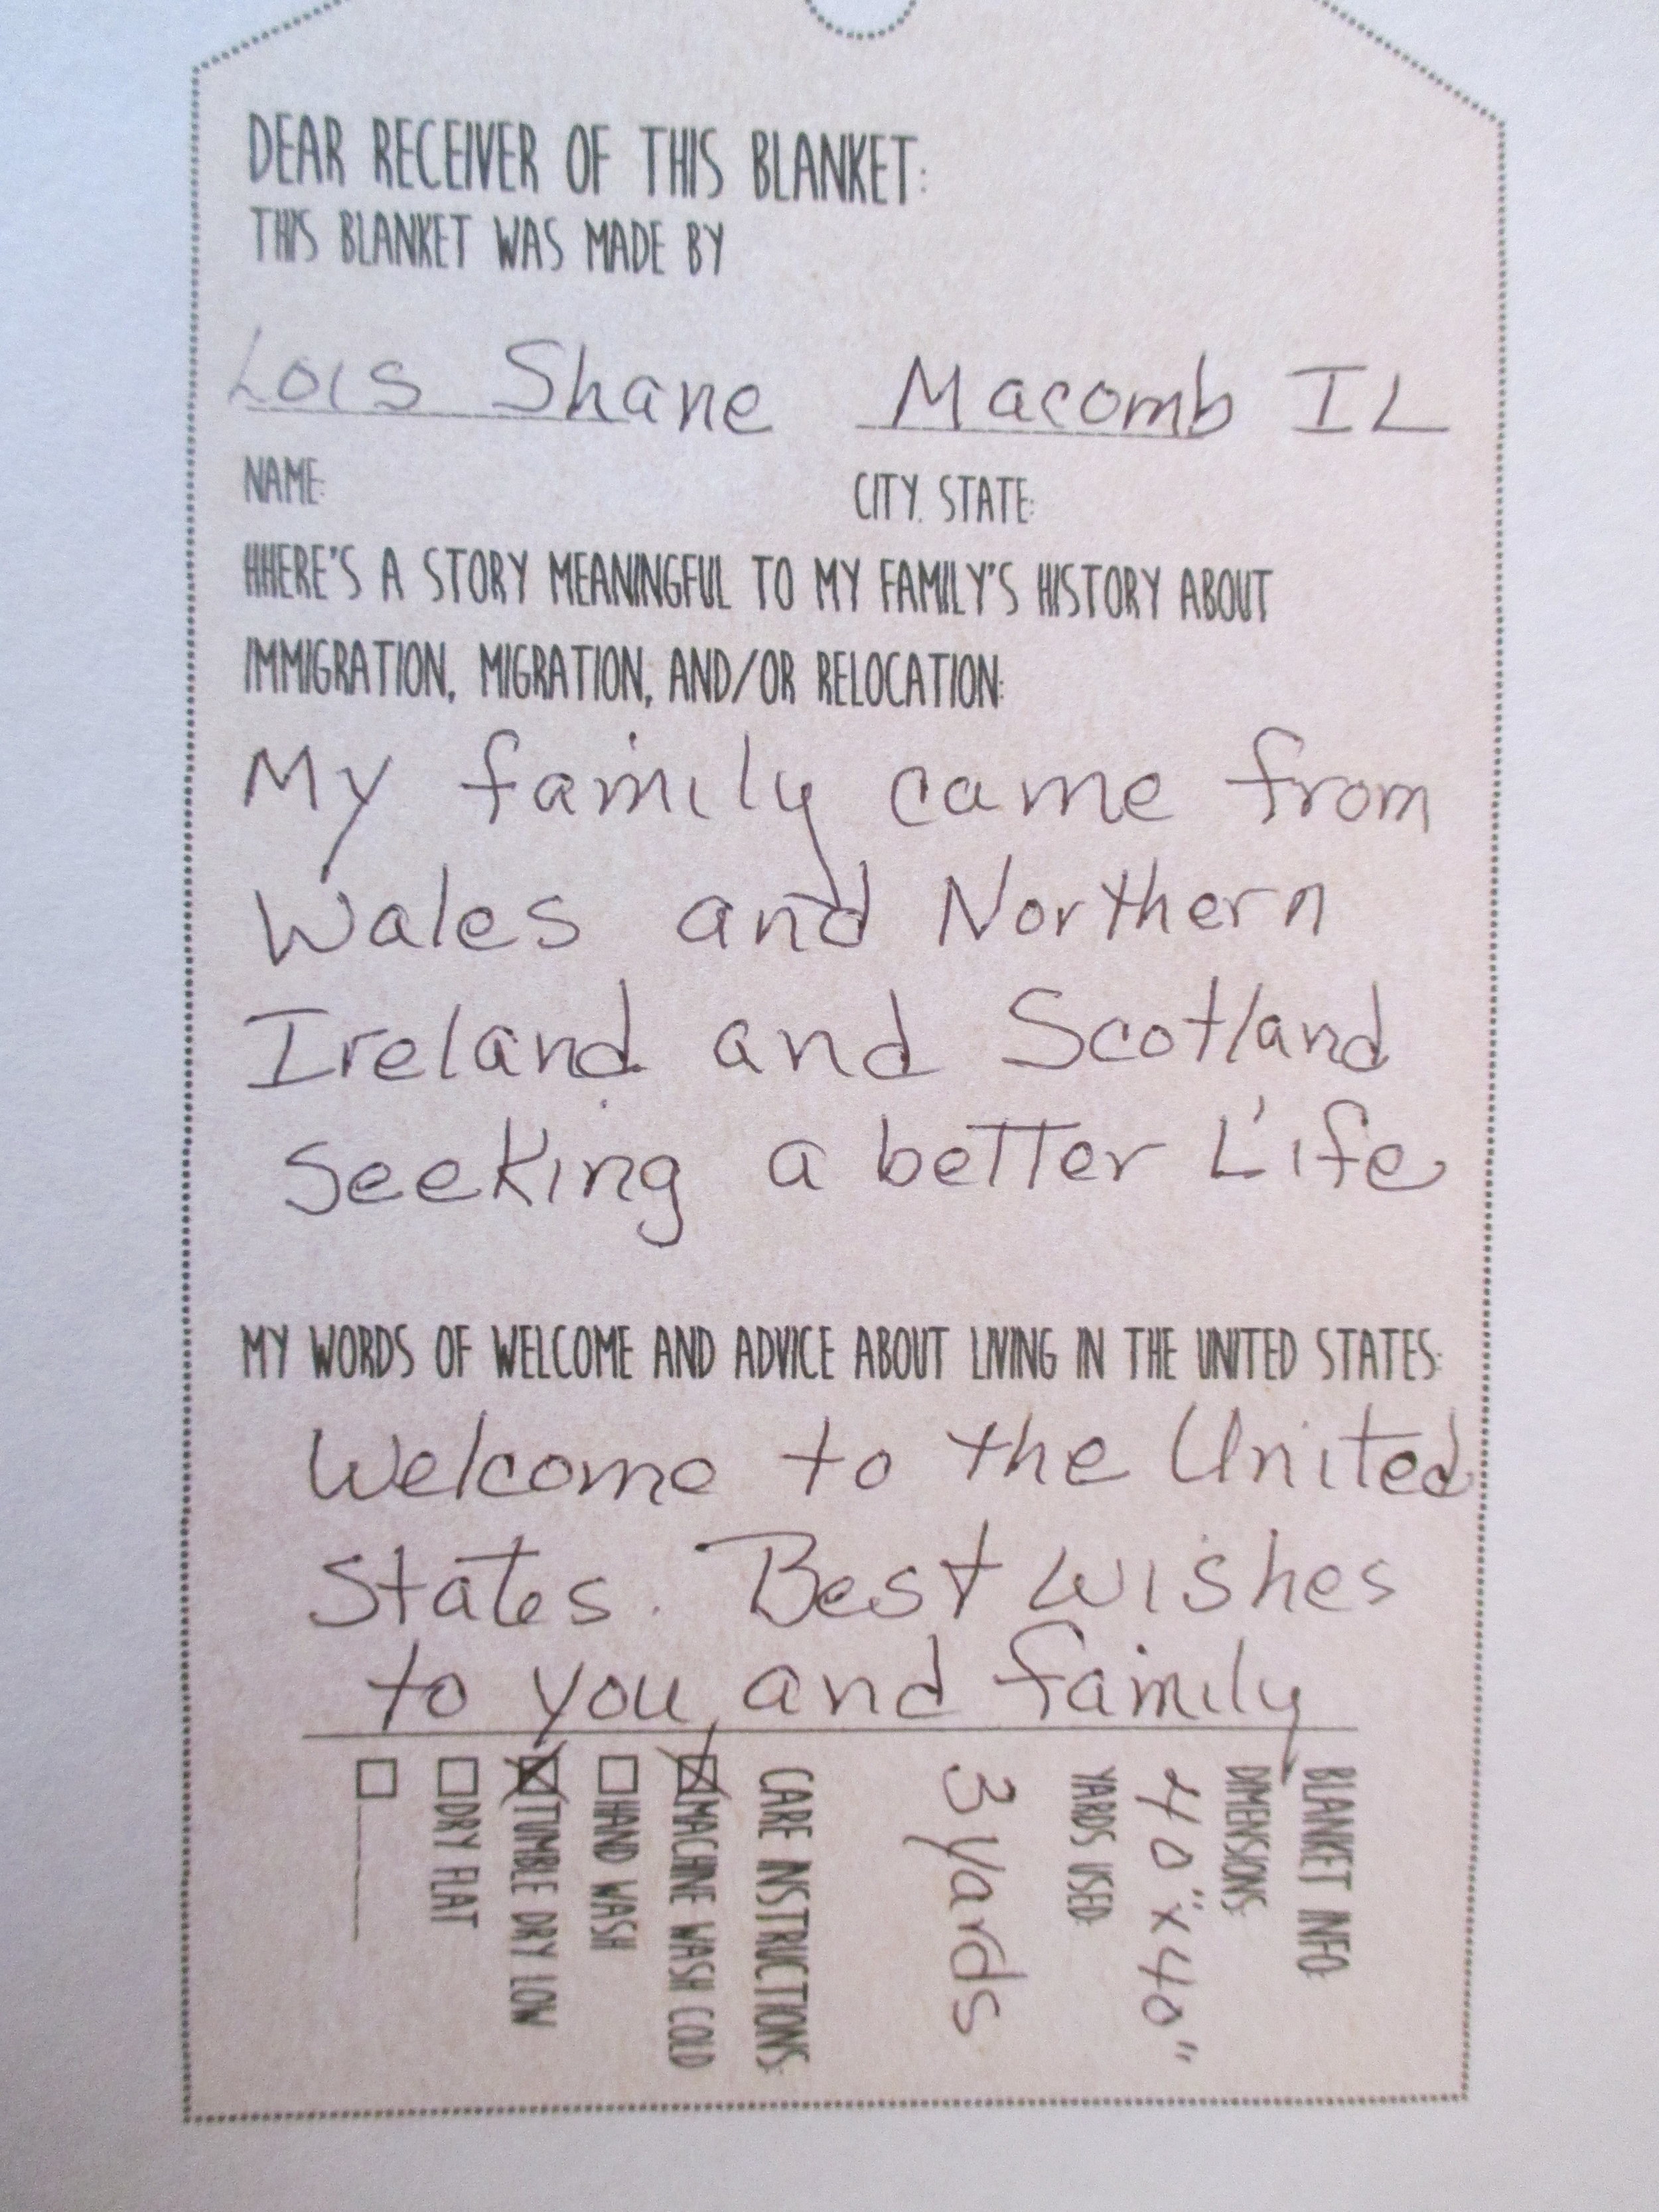 DEAR RECEIVER OF THIS BLANKET:
THIS BLANKET WAS MADE BY
Lois Shane Macomb IL
NAME: CITY, STATE:
HHERE'S A STORY MEANINGFUL TO MY FAMILY'S HISTORY ABOUT
IMMIGRATION, MIGRATION, AND/OR RELOCATION:
My family came from
Wales and Northern
Ireland and Scotland
seeking a better Life
MY WORDS OF WELCOME AND ADVICE ABOUT LIVING IN THE UNITED STATES:
Welcome to the United
States. Best wishes
to you, and family
BLANKET INFO:
DIMENSIONS:
40"x40"
YARDS USED:
3 yards
CARE INSTRUCTIONS:
MACHINE WASH COLD
HAND WASH
TUMBLE DRY LOW
DRY FLAT